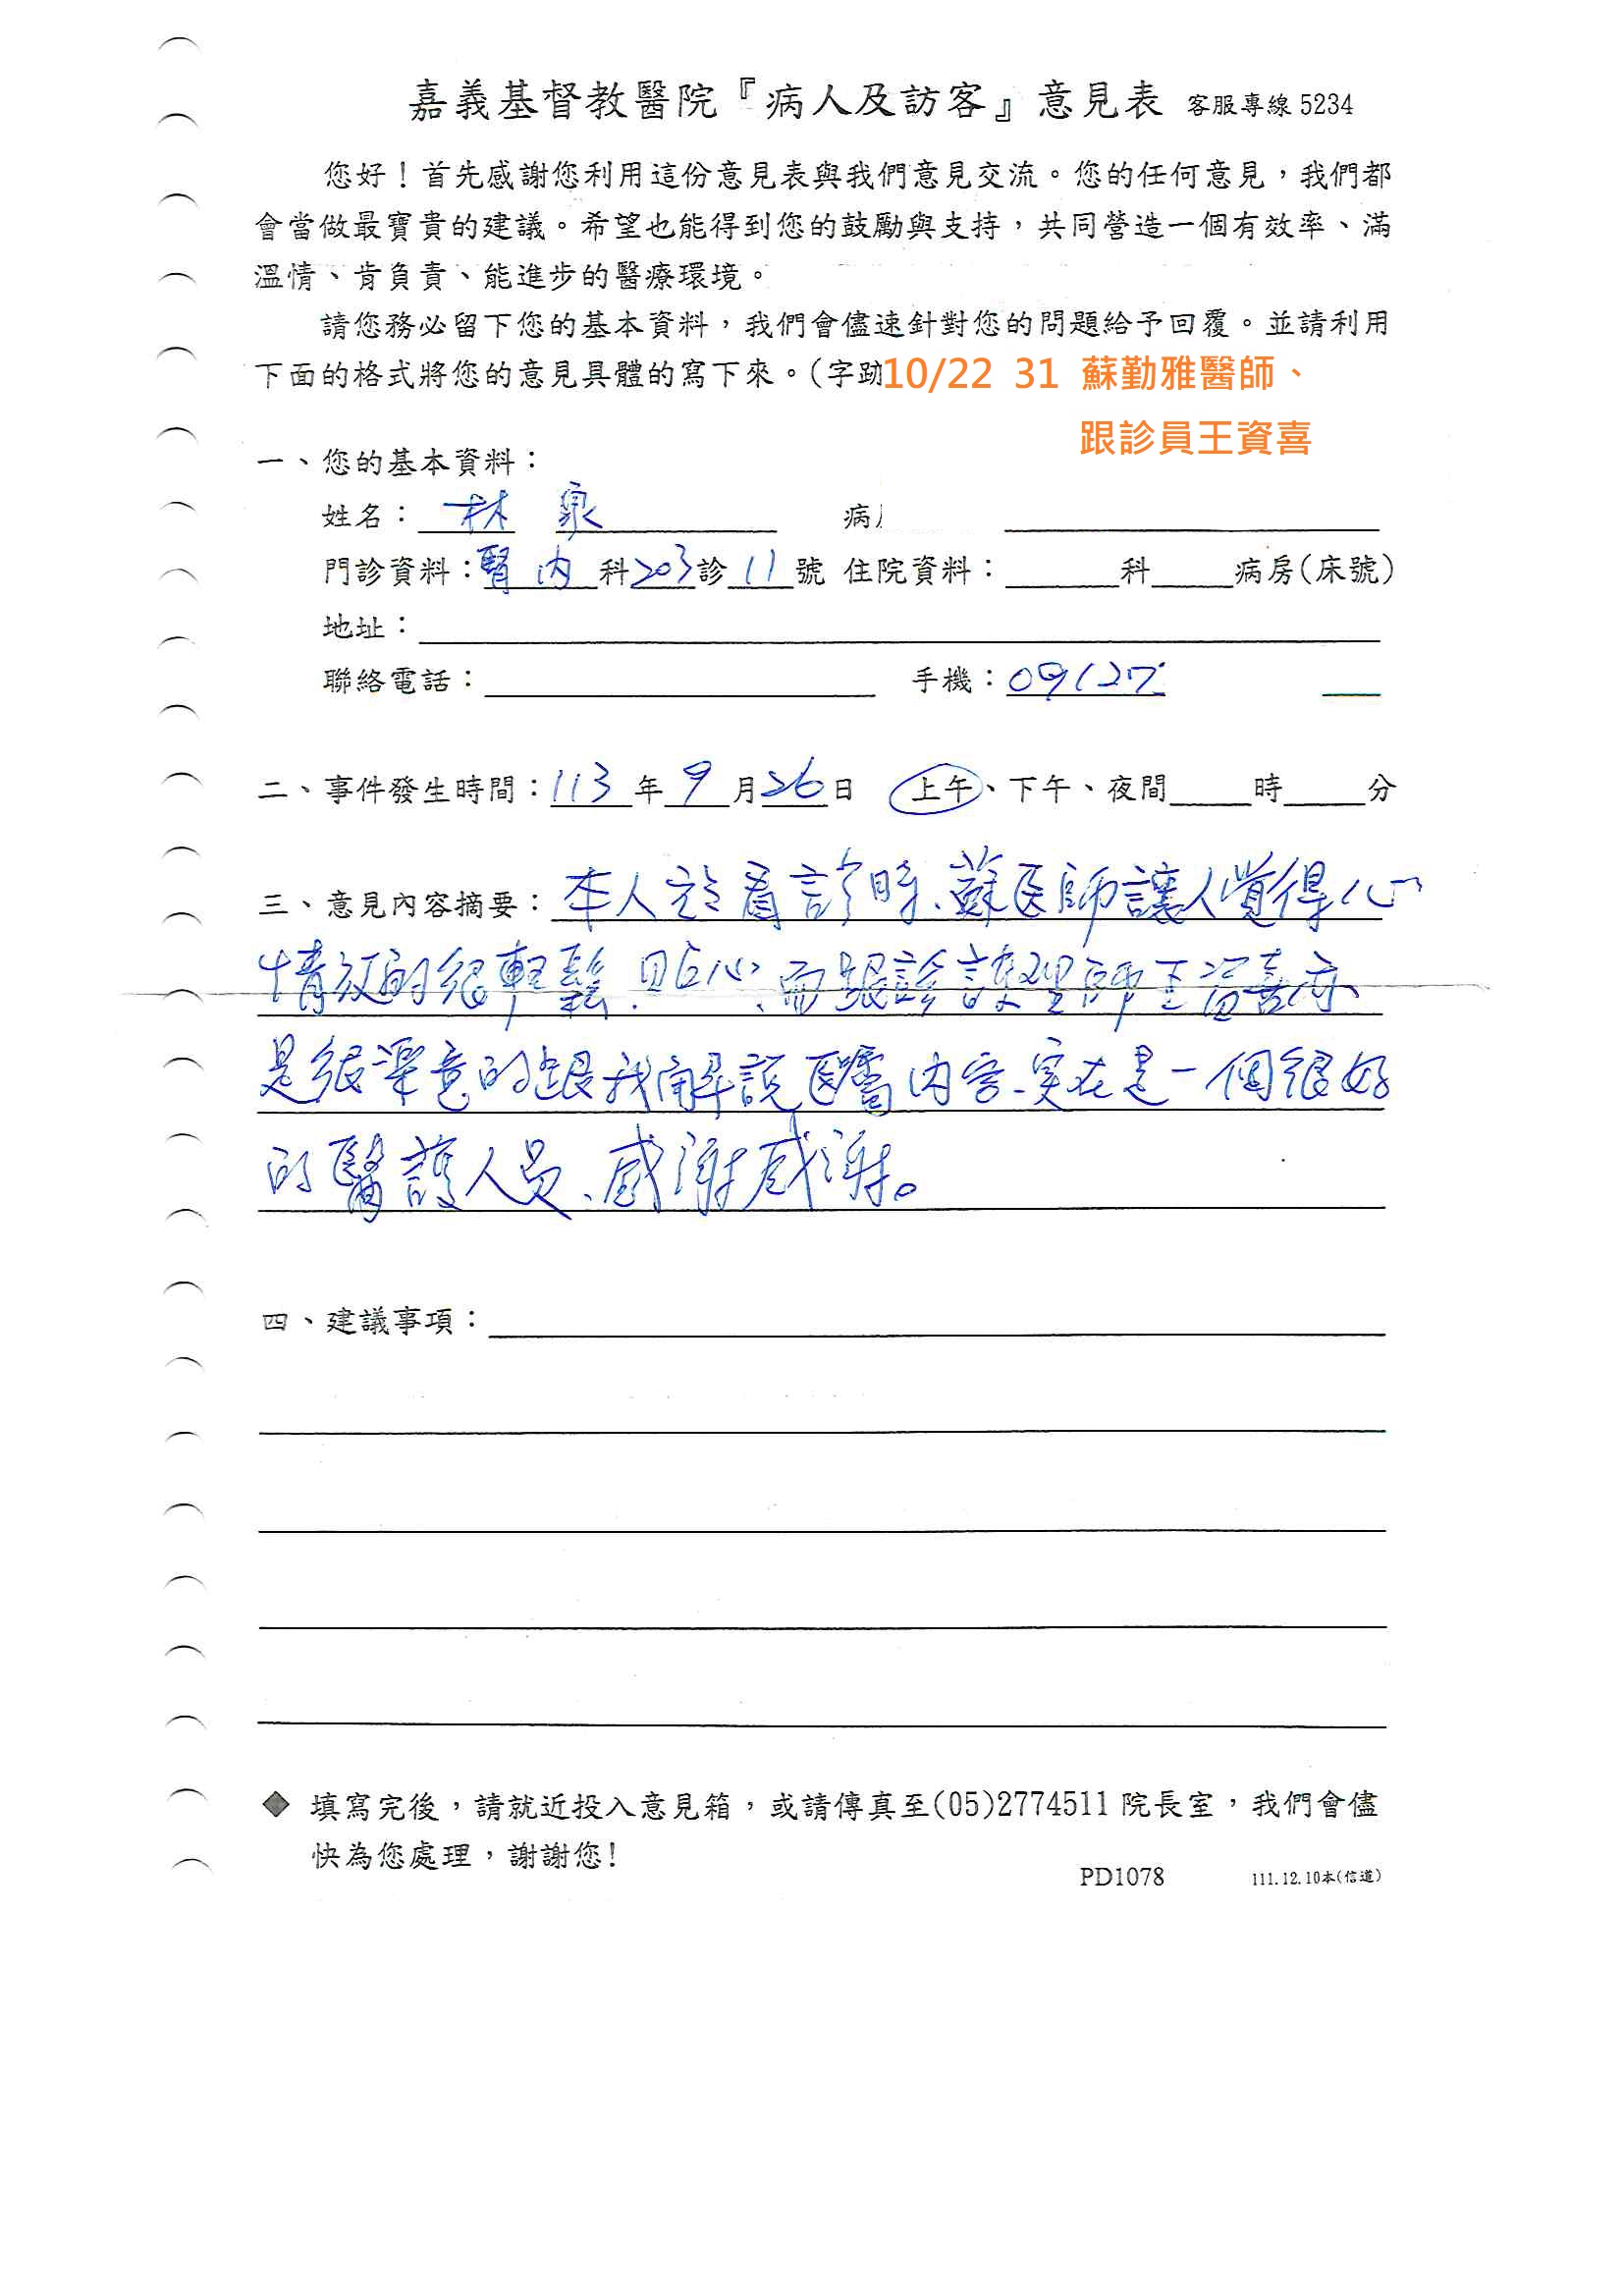 嘉義基督教醫院『病人及訪客』意見表 客服專線 5234
您好！首先感謝您利用這份意見表與我們意見交流。您的任何意見，我們都
會當做最寶貴的建議。希望也能得到您的鼓勵與支持，共同營造一個有效率、滿
溫情、肯負責、能進步的醫療環境。
請您務必留下您的基本資料，我們會儘速針對您的問題給予回覆。並請利用
下面的格式將您的意見具體的寫下來。(字跡10/22 31 蘇勤雅醫師、
跟診員王資喜
一、您的基本資料：
姓名：林 泉 病
門診資料：腎內科203診11號 住院資料：科病房(床號)
地址：
聯絡電話： 手機：09127
二、事件發生時間：113年9月26日 上午、下午、夜間時分
三、意見內容摘要：本人於看診時、蘇医師讓人覺得心
情放的很輕鬆.貼心、而跟診護理師王資喜亦
是很樂意的跟我解說医囑內容、実在是一個很好
的醫護人员、感謝感謝。
四、建議事項：
◆ 填寫完後，請就近投入意見箱，或請傳真至(05)2774511 院長室，我們會儘
快為您處理，謝謝您!
PD1078 111.12.10本(信道)